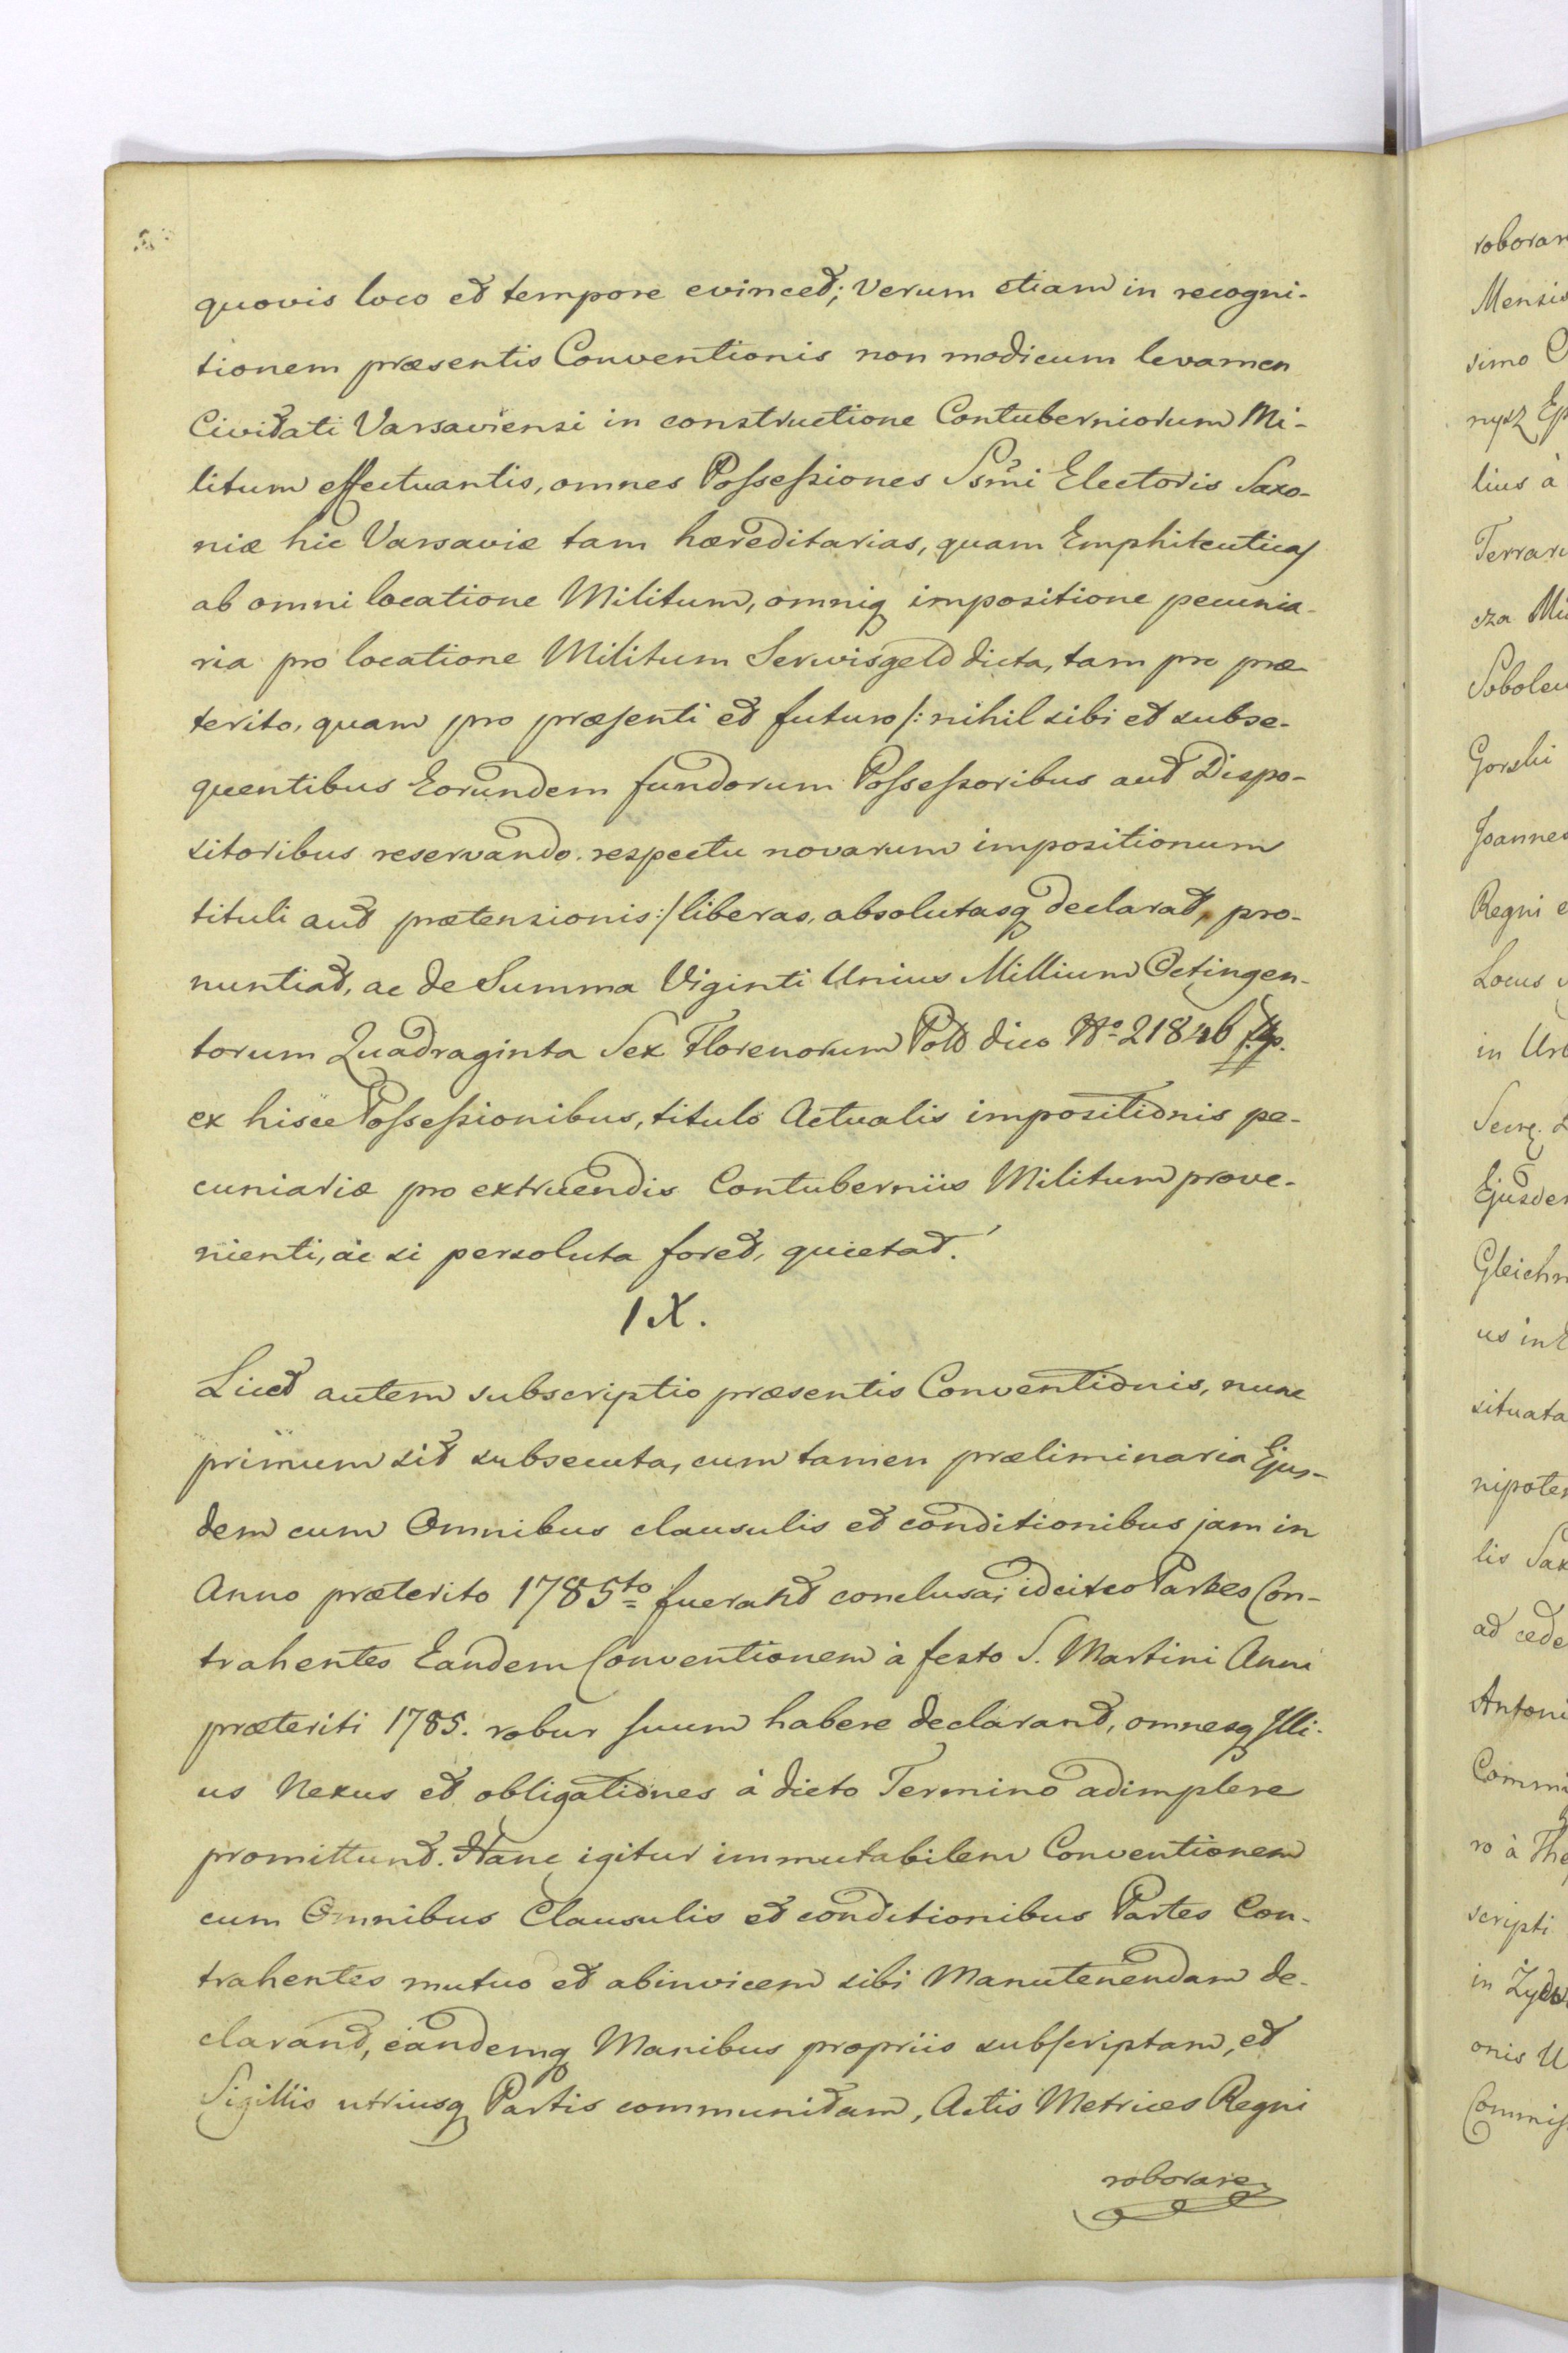 quovis loco et tempore evincet; Verum etiam in recogni-
tionem præsentis Conventionis non modicum levamen
Civitati Varsaviensi in constructione Contuberniorum Mi-
litum effectuantis, omnes Possessiones Ssmi Electoris Saxo-
niæ hic Varsaviæ tam hæreditarias, quam Emphiteuticas
ab omni locatione Militum, omniq impositione pecunia-
ria pro locatione Militum Serwisgeld dicta, tam pro præ
terito, quam pro præsenti et futuro /: nihil sibi et subse-
quentibus Eorundem fundorum Possessoribus aut Dispo-
sitoribus reservando respectu novarum impositionum
tituli aut prætensionis :/ liberas, absolutasq declarat, pro-
nuntiat, ac de Summa Viginti Unius Millium Octingen-
torum Quadraginta Sex Florenorum Pold dico No 21846 fp.
ex hisce Possessionibus, titulo Actualis impositionis pe-
cuniariæ pro extruendis Contuberniis Militum prove-
nienti, ac si persoluta foret, quietat.
IX.
Licet autem subscriptio præsentis Conventionis, nunc
primum sit subsecuta, cum tamen præliminaria Ejus-
dem cum Omnibus clausulis et conditionibus jam in
Anno præterito 1785to fuerant conclusa; idcirco Partes Con-
trahentes Eandem Conventionem à festo S. Martini Anni
præteriti 1785. robur suum habere declarant, omnesq Illi-
us Nexus et obligationes à dicto Termino adimplere
promittunt. Hanc igitur immutabilem Conventionem
cum Omnibus Clausulis et conditionibus Partes Con-
trahentes mutuo et abinvicem sibi Manutenendam de-
clarant, eandemq Manibus propriis subscriptam, et
Sigillis utriusq Partis communitam, Actis Metrices Regni
roborare
roboran
Mensis
simo
nysz
lius à
Terrar
cza
Sobolew
Gorski
Joannes
Regni e
Locus
in Urb
Secre.
Ejusdem
Gleichm
us in
situata
nipoten
lis Sax
ad cede
Antoni
Commi
ro à The
scripti
in Zydo
onis U
Commiss